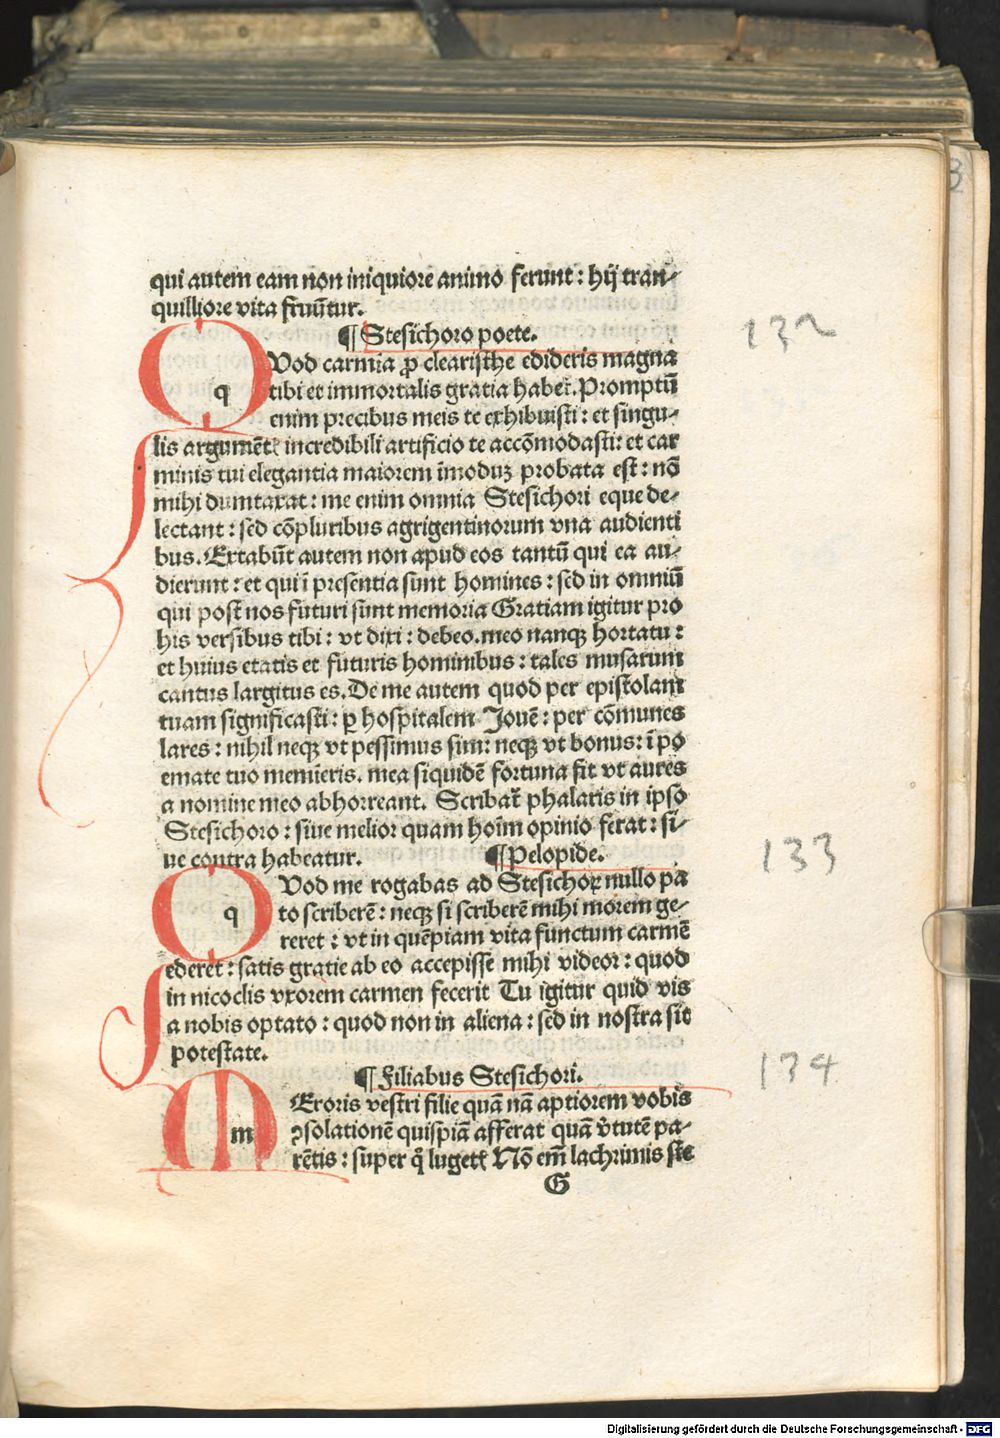 qui autem eam non iniquiore animo ferunt : hij tran⸗
quilliore vita fruūtur.
¶ Stesichoro poete.
132
QVod carmīa ꝓ clearisthe edideris magna
q tibi et immortalis gratia habet. Promptū
enim precibus meis te exhibuisti : et singu⸗
lis argumētꝭ incredibili artificio te accōmodasti: et car
minis tui elegantia maiorem īmoduꝫ probata est : nō
mihi dumtaxat : me enim omnia Stesichori eque de⸗
lectant : sed cōpluribus agrigentinorum vna audienti
bus. Extabūt autem non apud eos tantū qui ea au⸗
dierunt : et qui ī presentia sunt homines : sed in omniū
qui post nos futuri sunt memoria Gratiam igitur pro
his versibus tibi : vt dixi : debeo. meo nanqꝫ hortatu :
et huius etatis et futuris hominibus : tales musarum
cantus largitus es. De me autem quod per epistolam
tuam significasti : ꝑ hospitalem Jouē : per cōmunes
lares : nihil neqꝫ vt pessimus sim: neqꝫ vt bonus: ī po
emate tuo memīeris. mea siquidē fortuna fit vt aures
a nomine meo abhorreant. Scribat̃ phalaris in ipso
Stesichoro : siue melior quam hoīm opinio ferat : si⸗
ue contra habeatur. ¶ Pelopide.
133
QVod me rogabas ad Stesichoꝝ nullo pa
q to scriberē : neqꝫ si scriberē mihi morem ge⸗
reret : vt in quēpiam vita functum carmē
ederet : satis gratie ab eo accepisse mihi videor : quod
in nicoclis vxorem carmen fecerit Tu igitur quid vis
a nobis optato : quod non in aliena : sed in nostra sit
potestate.
134
¶ Filiabus Stesichori.
MEroris vestri filie quā nā aptiorem vobis
m ꝯsolationē quispiā afferat quā v̄tutē pa⸗
rētis : super q̊ lugetꝭ Nō em̄ lachrimis ste
G
Digitalisierung gefördert durch die Deutsche Forschungsgemeinschaft - DFG